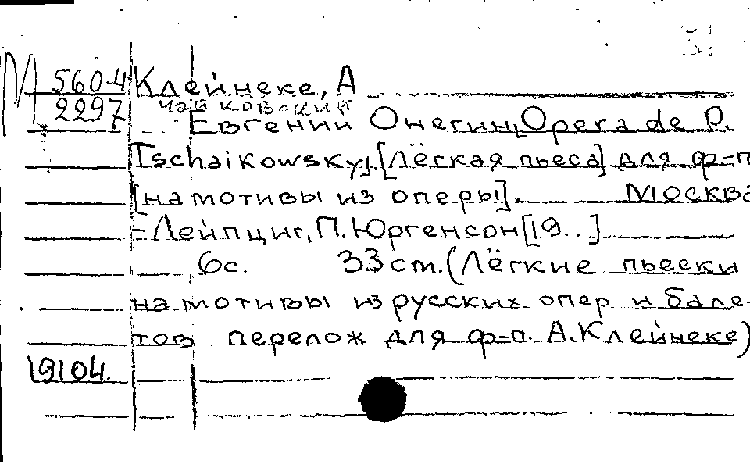 М 5604 Клейнеке, А
2297 Чайковский
Евгений Онегин, Opera de P.
Tschaikowsky. [Лёгкая пьеса] для ф-п
[на мотивы из оперы]. Москва
-Лейпциг, П. Юргенсон [19..]
6с. 33 cm. (Лёгкие пьески
на мотивы из русских опер и бале-
тов перелож для ф-п. А. Клейнеке)
19104.